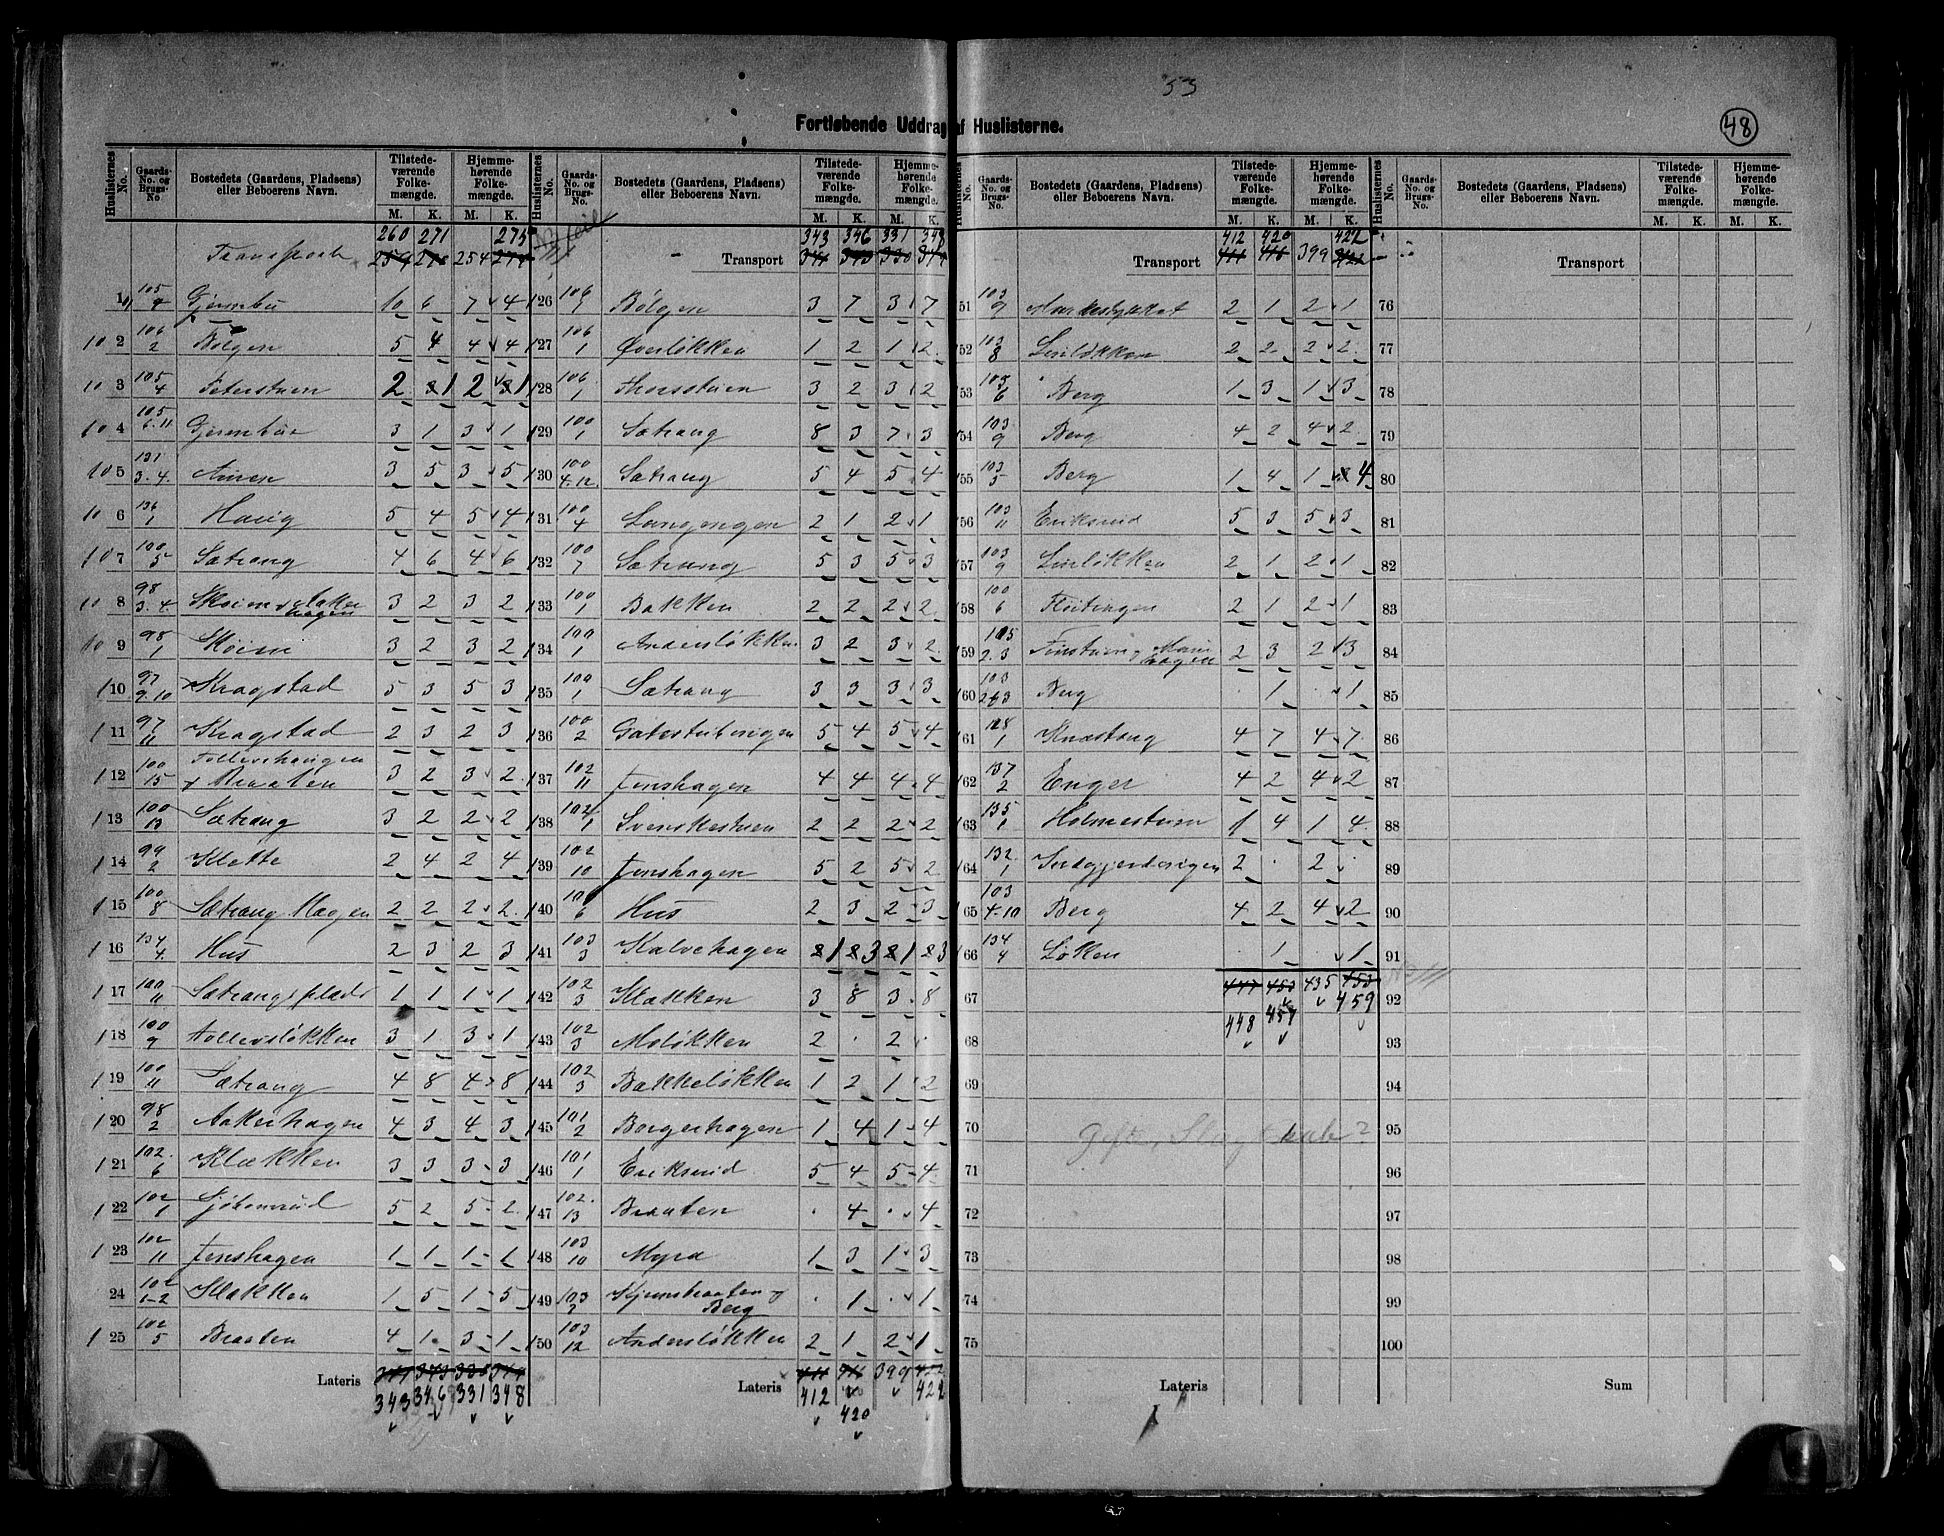 53
48
Fortløbende Uddrag af Huslisterne.
Huslisternes No. Gaards-No. og Brugs-No Bostedets (Gaardens, Pladsens) eller Beboerens Navn. Tilstedeværende Folkemængde. M. K. Hjemmehørende Folkemængde. M. K.
Transport 260 271 275
259 270 254 274
101 105/4 Gjermbu 10 6 7 4
102 106/2 Bølgen 5 4 4 4
103 105/4 Peterstuen 2 1 2 1
104 105/6.11 Gjermbu 3 1 3 1
105 131/3.4. Aamen 3 5 3 5
106 136/1 Haug 5 4 5 4
107 100/5 Sætrang 4 6 4 6
108 98/3.4 3 2 3 2
109 98/1 Skøien 3 2 3 2
110 97/9.10 Kragstad 5 3 5 3
111 97/11 Kragstad 2 3 2 3
112 100/15 Tollevshaugen + Braaten 3 2 3 2
113 100/13 Sætrang 3 2 2 2
114 99/2 Klette 2 4 2 4
115 100/8 Sætrang Hagen 2 2 2 2
116 134/4. Hus 2 3 2 3
117 100/11 Sætrangsplads 1 1 1 1
118 100/9 Tollevsløkken 3 1 3 1
119 100/11 Sætrang 4 8 4 8
120 98/2 Aakerhagen 4 3 4 3
121 102/6 Klækken 3 3 3 3
122 102/1 5 2 5 2
123 102/11 Jenshagen 1 1 1 1
24 102/1-2 Klækken 1 5 1 5
125 102/5 Braaten 4 1 3 1
Lateris 343 346 331 348
Huslisternes No. Gaards-No. og Brugs-No. Bostedets (Gaardens, Pladsens) eller Beboerens Navn. Tilstedeværende Folkemængde. M. K. Hjemmehørende Folkemængde. M. K.
343 346 331 348
Transport
126 106/1 Bølgen 3 7 3 7
127 106/1 Øverløkken 1 2 1 2
128 106/1 Thorsstuen 3 2 3 2
129 100/1 Sætrang 8 3 7 3
130 100/4.12. Sætrang 5 4 5 4
131 100/4 Langengen 2 1 2 1
132 100/7 Sætrang 5 3 5 3
133 100/1 Bakken 2 2 2 2
134 100/1 Andersløkken 3 2 3 2
135 100/1 Sætrang 3 3 3 3
136 100/2 5 4 5 4
137 102/11 Jenshagen 4 4 4 4
138 102/1 Svenskestuen 2 2 2 2
139 102/10 Jenshagen 5 2 5 2
140 Hus 2 3 2 3
141 103/3 Kalvehagen 1 3 1 3
142 102/3 Klækken 3 8 3 8
143 102/3 Moløkken 2 . 2 .
144 102/3 Bakkeløkken 1 2 1 2
145 101/2 Borgerhagen 1 4 1 4
146 101/1 Eriksrud 5 4 5 4
147 102/13 Braaten . 4 . 4
148 103/10 Myra 1 3 1 3
149 Berg . 1 . 1
150 103/12 Andersløkken 2 1 2 1
Lateris 412 420 399 422
Huslisternes No. Gaards-No. og Brugs-No. Bostedets (Gaardens, Pladsens) eller Beboerens Navn. Tilstedeværende Folkemængde. M. K. Hjemmehørende Folkemængde. M. K.
412 420 399 422
Transport
151 103/9 Markestykket 2 1 2 1
152 103/8 2 2 2 2
153 103/6 Berg 1 3 1 3
154 103/9 Berg 4 2 4 2
155 103/5 Berg 1 4 1 4
156 103/11 Eriksrud 5 3 5 3
157 103/9 2 1 2 1
158 100/6 Fløitingen 2 1 2 1
159 105/2.3 2 3 2 3
160 Berg . 1 . 1
161 128/1 Knæstang 4 7 4 7
162 137/2 Enger 4 2 4 2
163 135/1 Holmestuen 1 4 1 4
164 132/1 2 . 2 .
165 103/4-10 Berg 4 2 4 2
166 134/4 Løken . 1 . 1
67 447 453 435 453
459
68 448 457
69
70
71
72
73
74
75
Lateris
Huslisternes No. Gaards-No. og Brugs-No. Bostedets (Gaardens, Pladsens) eller Beboerens Navn. Tilstedeværende Folkemængde. M. K. Hjemmehørende Folkemængde. M. K.
Transport
76
77
78
79
80
81
82
83
84
85
86
87
88
89
90
91
92
93
94
95
96
97
98
99
100
Sum